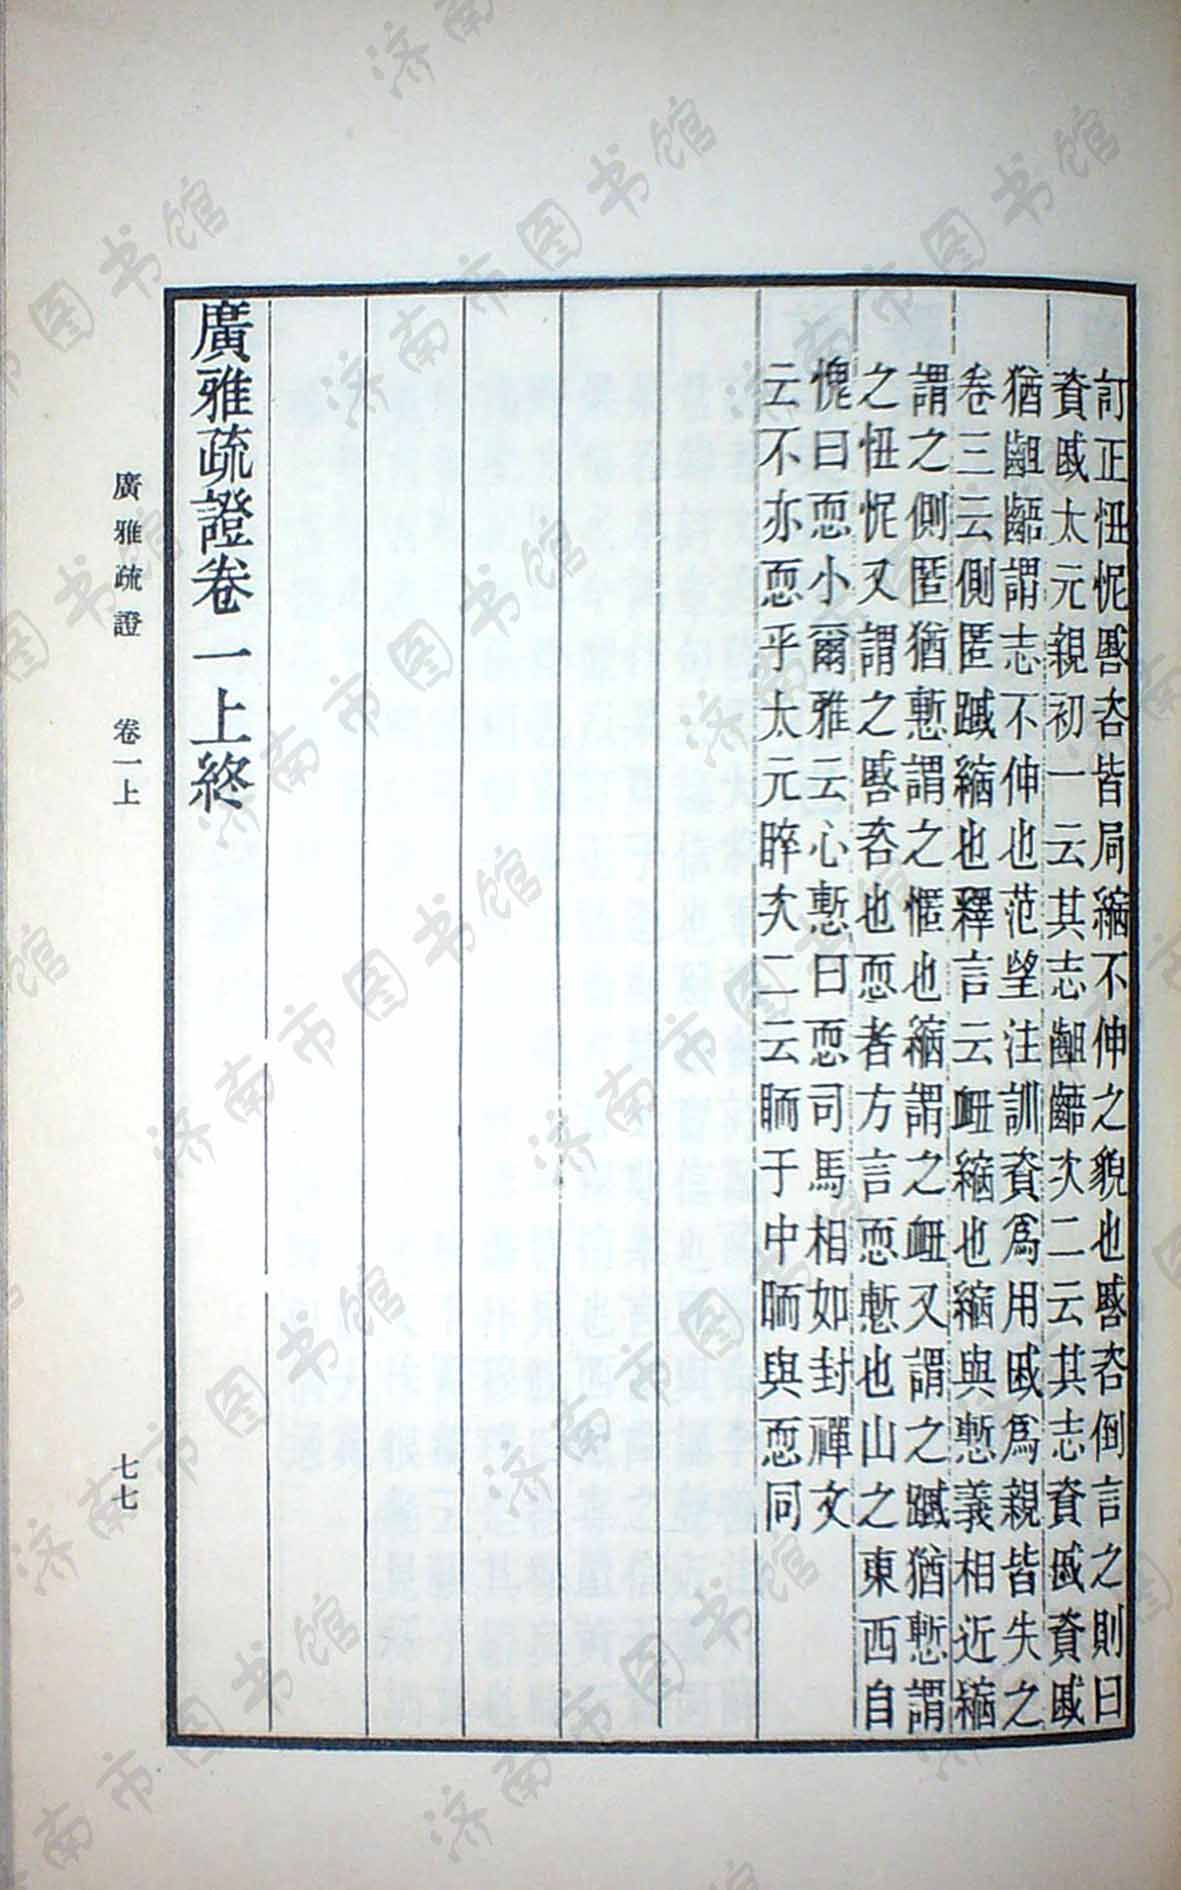 訂正忸怩慼咨皆局縮不伸之貌也慼咨倒言之則曰
資戚太元親初一云其志齟齬次二云其志資戚資戚
猶齟齬謂志不伸也范望注訓資爲用戚爲親皆失之
卷三云側匿䠞縮也釋言云衄縮也縮與慙義相近縮
謂之側匿猶慙謂之㥾也縮謂之衄又謂之䠞猶慙謂
之忸怩又謂之慼咨也恧者方言恧慙也山之東西自
愧曰恧小爾雅云心慙曰恧司馬相如封禪文
云不亦恧乎太元睟次二云于中與恧同
廣雅疏證卷一上終
廣雅疏證 卷一上
七七
济南市图书馆